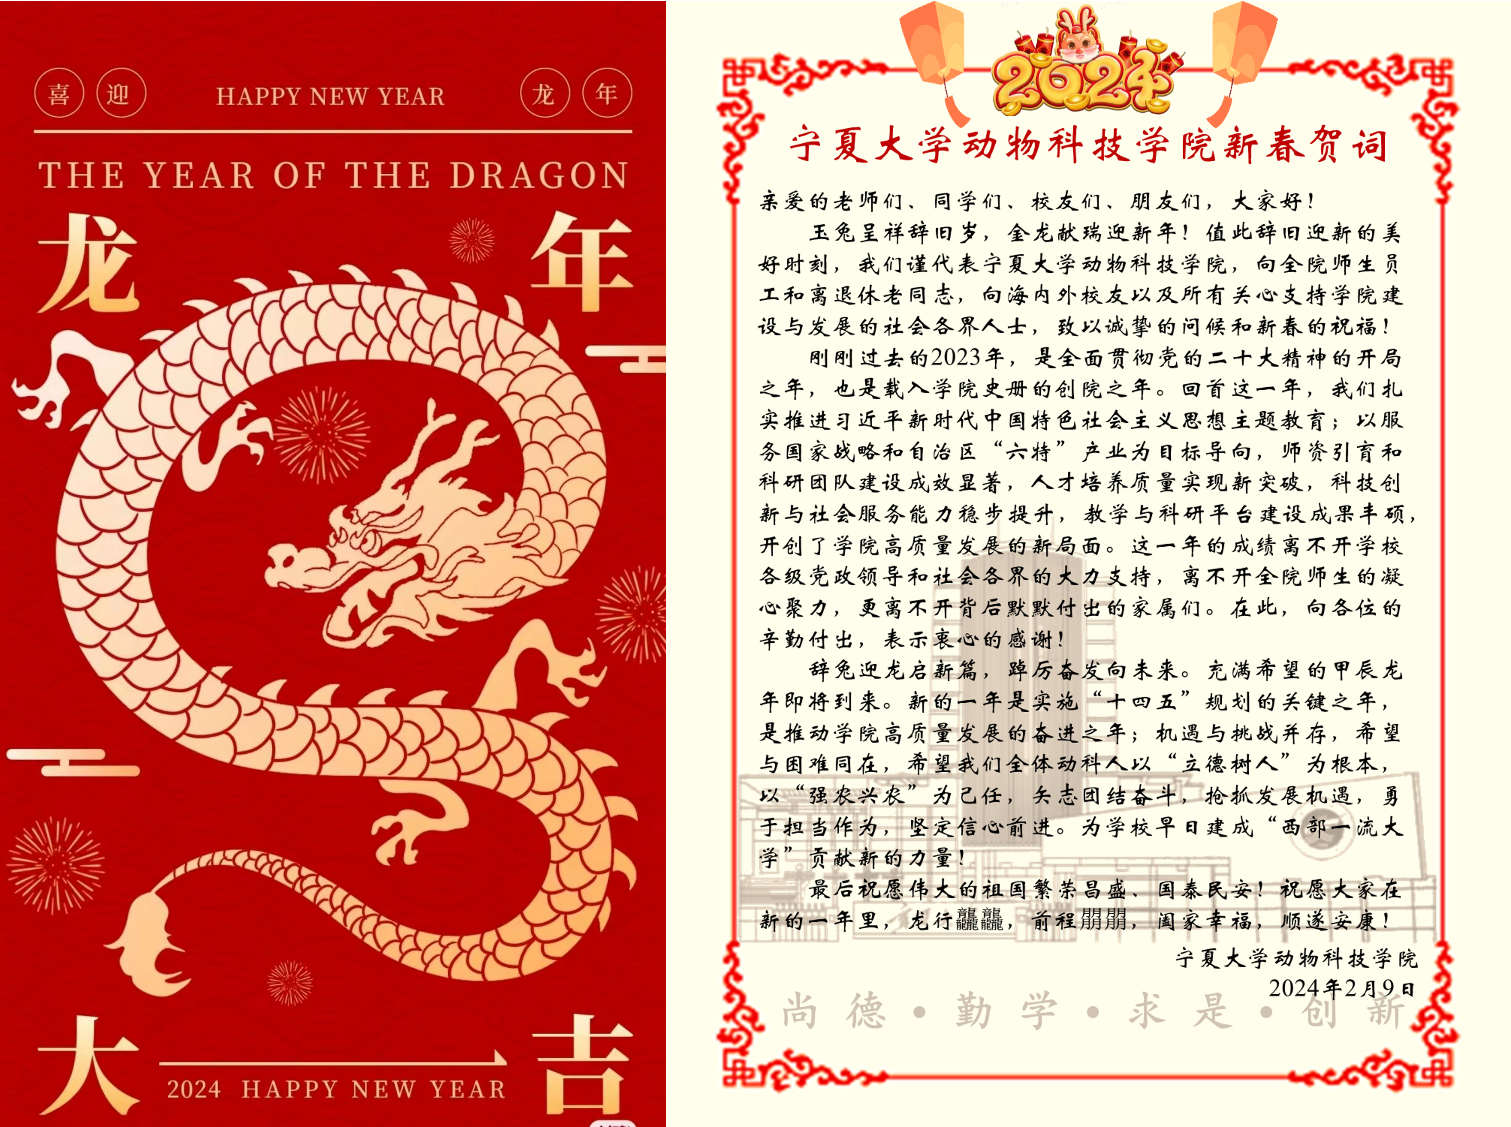 喜迎 HAPPY NEW YEAR 龙年
THE YEAR OF THE DRAGON
龙年
大吉
2024 HAPPY NEW YEAR
2024
宁夏大学动物科技学院新春贺词
亲爱的老师们、同学们、校友们、朋友们，大家好！
玉兔呈祥辞旧岁，金龙献瑞迎新年！值此辞旧迎新的美
好时刻，我们谨代表宁夏大学动物科技学院，向全院师生员
工和离退休老同志，向海内外校友以及所有关心支持学院建
设与发展的社会各界人士，致以诚挚的问候和新春的祝福！
刚刚过去的2023年，是全面贯彻党的二十大精神的开局
之年，也是载入学院史册的创院之年。回首这一年，我们扎
实推进习近平新时代中国特色社会主义思想主题教育；以服
务国家战略和自治区“六特”产业为目标导向，师资引育和
科研团队建设成效显著，人才培养质量实现新突破，科技创
新与社会服务能力稳步提升，教学与科研平台建设成果丰硕，
开创了学院高质量发展的新局面。这一年的成绩离不开学校
各级党政领导和社会各界的大力支持，离不开全院师生的凝
心聚力，更离不开背后默默付出的家属们。在此，向各位的
辛勤付出，表示衷心的感谢！
辞兔迎龙启新篇，踔厉奋发向未来。充满希望的甲辰龙
年即将到来。新的一年是实施“十四五”规划的关键之年，
是推动学院高质量发展的奋进之年；机遇与挑战并存，希望
与困难同在，希望我们全体动科人以“立德树人”为根本，
以“强农兴农”为己任，矢志团结奋斗，抢抓发展机遇，勇
于担当作为，坚定信心前进。为学校早日建成“西部一流大
学”贡献新的力量！
最后祝愿伟大的祖国繁荣昌盛、国泰民安！祝愿大家在
新的一年里，龙行龘龘，前程朤朤，阖家幸福，顺遂安康！
宁夏大学动物科技学院
2024年2月9日
尚德·勤学·求是·创新